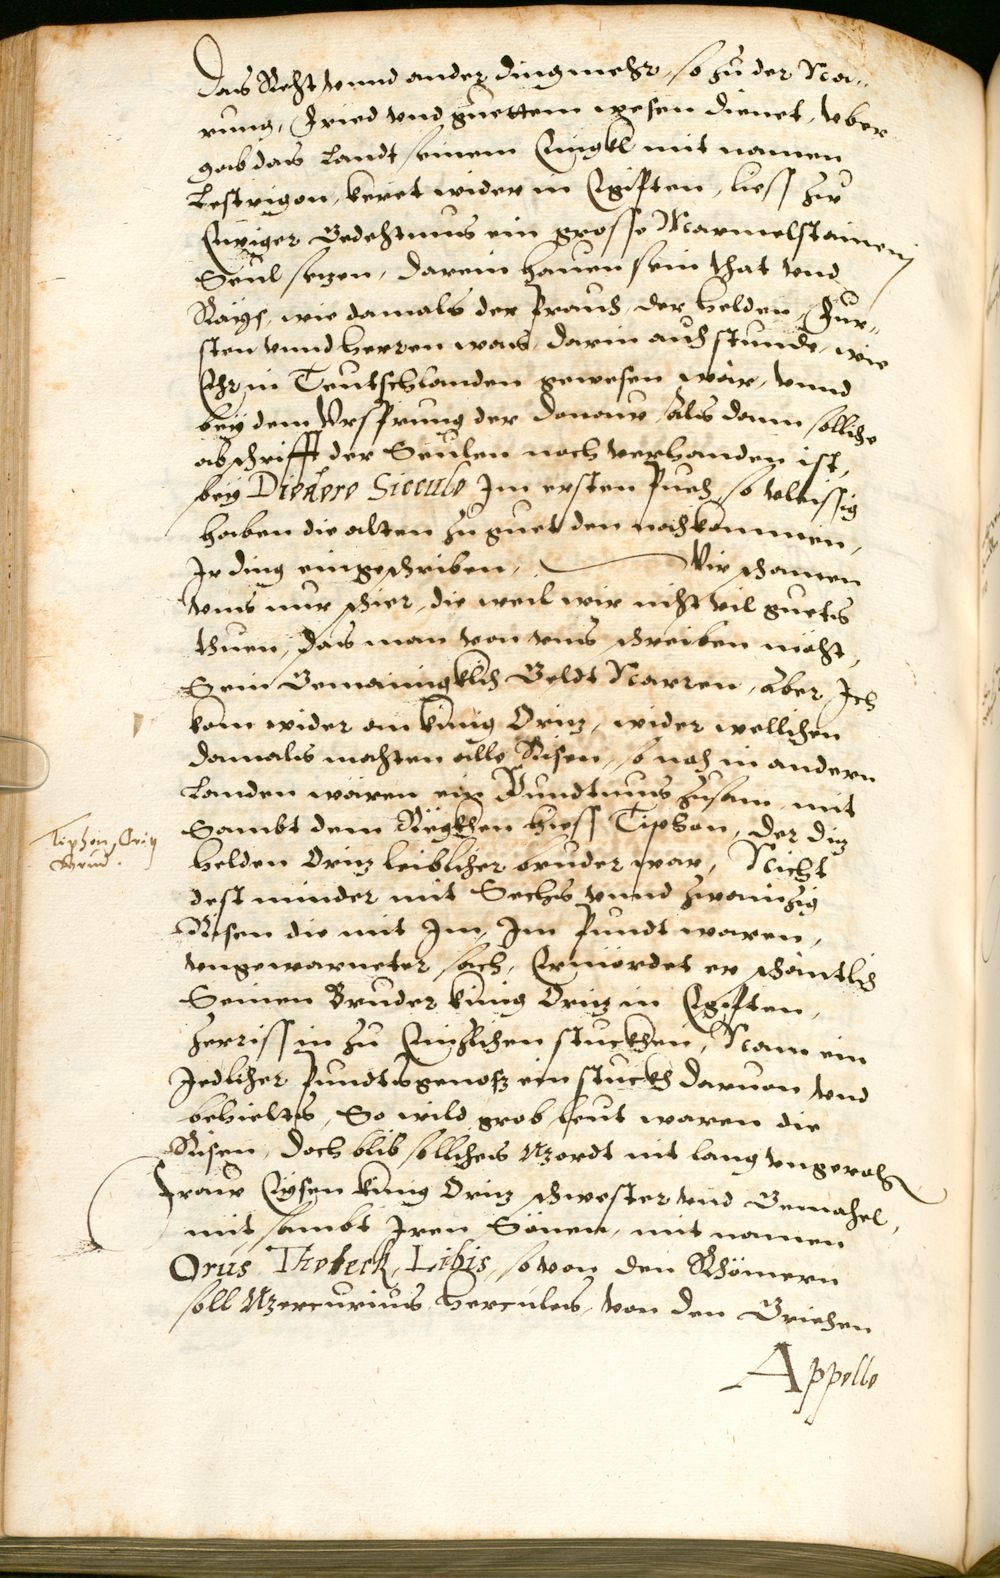 Das Recht vnnd ander ding mehr, so zu der Na„
rung, Fried vnd guettem wesen dienet, vber
gab das Landt seinem Enigkl mit namen
Lestrigon, keret wider in Egipten, liess zu
Ewiger Gedechtnus ein grosse Marmelstainen
Seul sezen, darein hauen sein that vnd
Rays, wie damals der prauch der helden, Fur„
sten vnnd herren was, darin auch stunde, wie
Ehr in Teutschlanden gewesen wär, vnnd
bey dem Vrsprung der donaw als dann solliche
abschrifft der Seulen noch verhanden ist,
bey Diodoro Siculo Im ersten puech, so vleissig
haben die alten zu guet den nachkommen,
Ir ding eingeschriben, Wir schamen
vnns nur schier, die weil wir nicht vil guets
thuen, das man von vnns schreiben möcht,
Sein Gemainigklich Geldt Narren, aber Ich
kom wider an künig Oriz, wider wellichen
damals machten alle Risen, so noch in andern
Landen wären ein Pundtnus zusam, mit
Sambt dem hiess Tiphon, der diz
helden Oriz leiblicher bruder war, Nicht
dest minder mit Sechs vnnd zwainzig
Risen die mit Im, Im pundt waren,
vngewarneter sach, Ermördet er schäntlich
Seinen Bruder künig Oriz in Egipten,
zerriss in zu Einzlichen stuckhen, Nam ein
Iedlicher pundtsgenoss ein stuckh daruon vnd
behielts, So wild grob leut waren die
Risen, doch blib solliches Mordt nit lang vngeroch
Fraw Eysen künig Oriz schwester vnd Gemahel,
mit sambt Iren Sönen, mit namen
Orus Libis, so von den Rhömern
soll Mercurius, hercules, von den Griechen
Appello
Tiphon, Oriz
Brud.